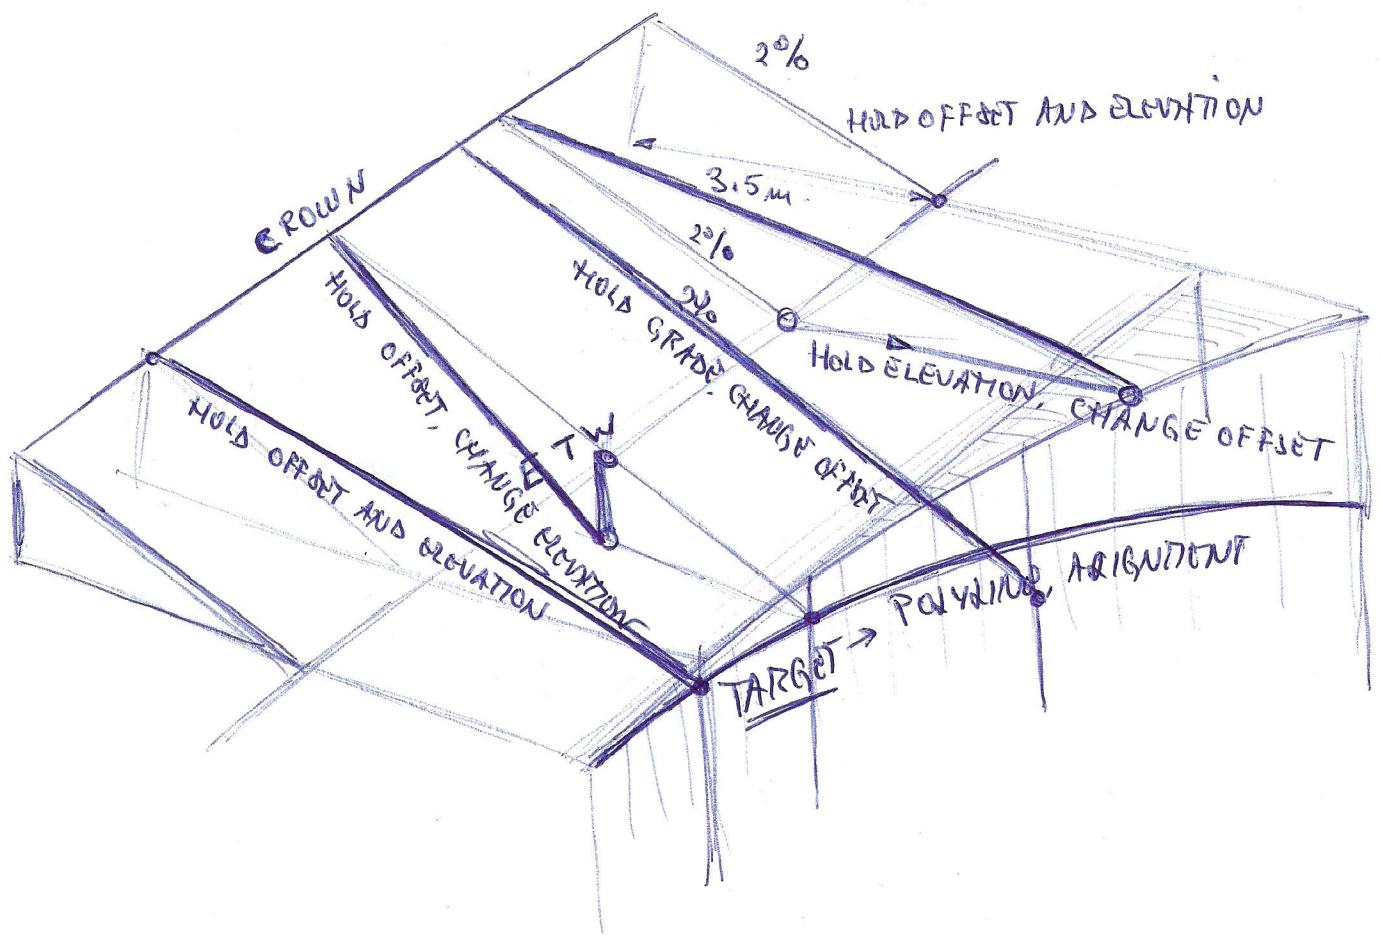 2%
HOLD OFFSET AND ELEVATION
3.5 m.
CROWN
2%
2%
HOLD GRADE, CHANGE OFFSET
HOLD ELEVATION, CHANGE OFFSET
HOLD OFFSET, CHANGE ELEVATION
HOLD OFFSET AND ELEVATION
TARGET → POLYLINE, ALIGNMENT